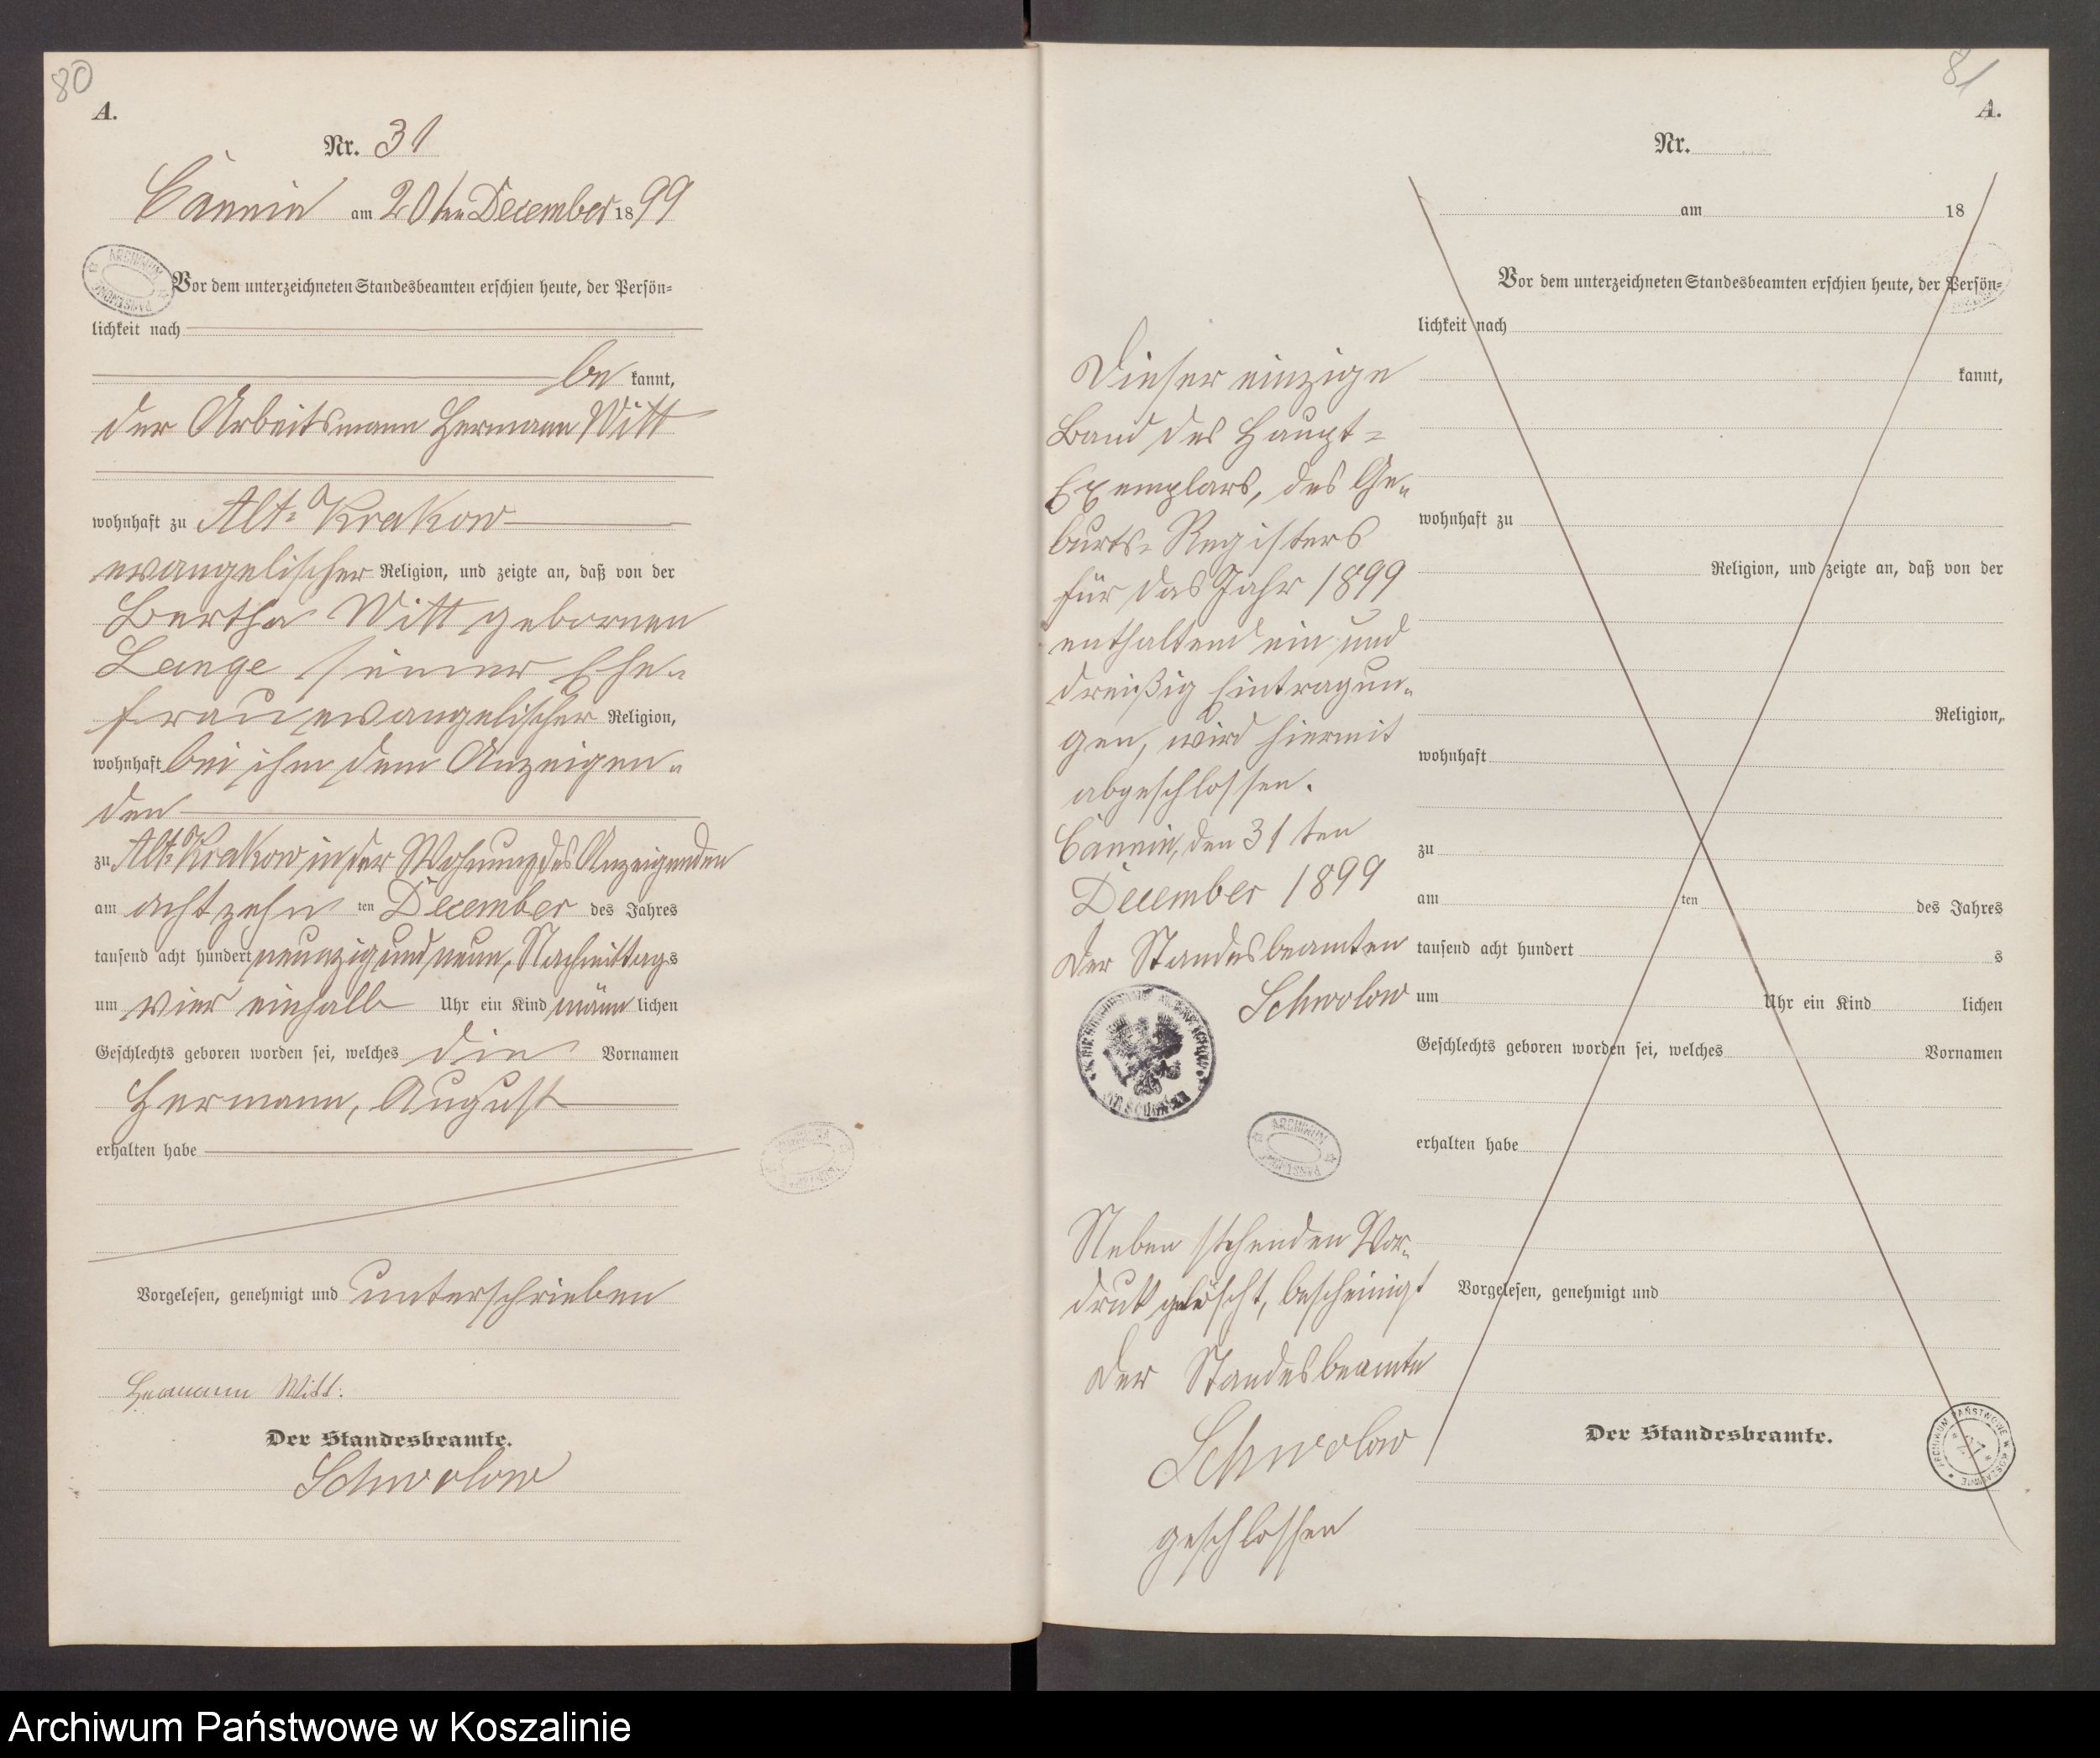 80
A.
Nr. 31
Cannin am 20ten December 1899
Vor dem unterzeichneten Standesbeamten erschien heute, der Persön-
lichkeit nach
be kannt,
der Arbeitsmann Hermann Witt
wohnhaft zu Alt-Krakow
evangelischer Religion, und zeigte an, daß von der
Bertha Witt gebornen
Lange seiner Ehe-
frau evangelischer Religion,
wohnhaft bei ihm dem Anzeigen-
den
zu Alt-Krakow in der Wohnung des Anzeigenden
am achtzehn ten December des Jahres
tausend acht hundert neunzig und neun, Nachmittags
um vier einhalb Uhr ein Kind männ lichen
Geschlechts geboren worden sei, welches die Vornamen
Hermann, August
erhalten habe
Vorgelesen, genehmigt und unterschrieben
Hermann Witt.
Der Standesbeamte.
Schwolow
ARCHIWUM PAŃSTWOWE
81
A.
Nr.
am 18
Vor dem unterzeichneten Standesbeamten erschien heute, der Persön-
lichkeit nach
kannt,
wohnhaft zu
Religion, und zeigte an, daß von der
Religion,
wohnhaft
zu
am ten des Jahres
tausend acht hundert s
um Uhr ein Kind lichen
Geschlechts geboren worden sei, welches Vornamen
erhalten habe
Vorgelesen, genehmigt und
Der Standesbeamte.
Dieser einzige
Band des Haupt-
Exemplars, des Ge-
burts-Registers
für das Jahr 1899
enthaltend ein und
dreißig Eintragun-
gen, wird hiermit
abgeschlossen.
Cannin, den 31ten
December 1899
Der Standesbeamten
Schwolow
ARCHIWUM PAŃSTWOWE
Neben stehenden Vor-
druk gelöscht, bescheinigt
Der Standesbeamte
Schwolow
geschlossen
ARCHIWUM PAŃSTWOWE W KOSZALINIE
Archiwum Państwowe w Koszalinie